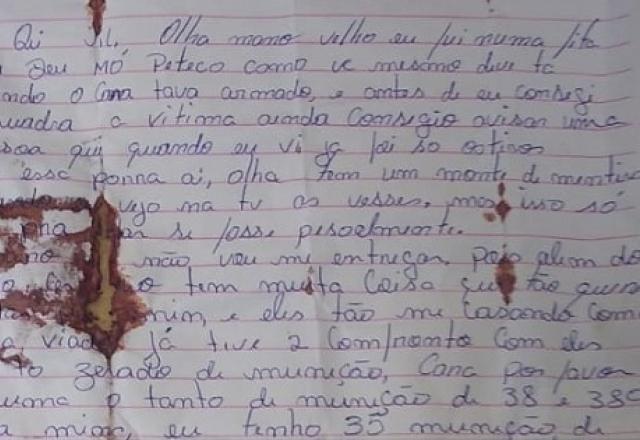 Oi Vil, Olha mano velho eu fui numa fita
Deu MÓ Peteco como vc mesmo deve tá
ndo o Cana tava armado, e antes de eu consegi
uadra a vitima ainda Consegio avisar uma
soa qui quando eu vi já foi so
essa porra ai, olha tem um monte de mentira
vejo na tv as vesses, mas isso só
se fosse pesoalmente.
não vou me entregar, pois alem do
o tem muita Coisa qui tão
mim, e eles tão me Casando Com
a viad já tive 2 Comfronto Com eles
to zerado de munição, Cana por favor
uma o tanto de munição de 38 e 380
a mior, eu tenho 35 munição de